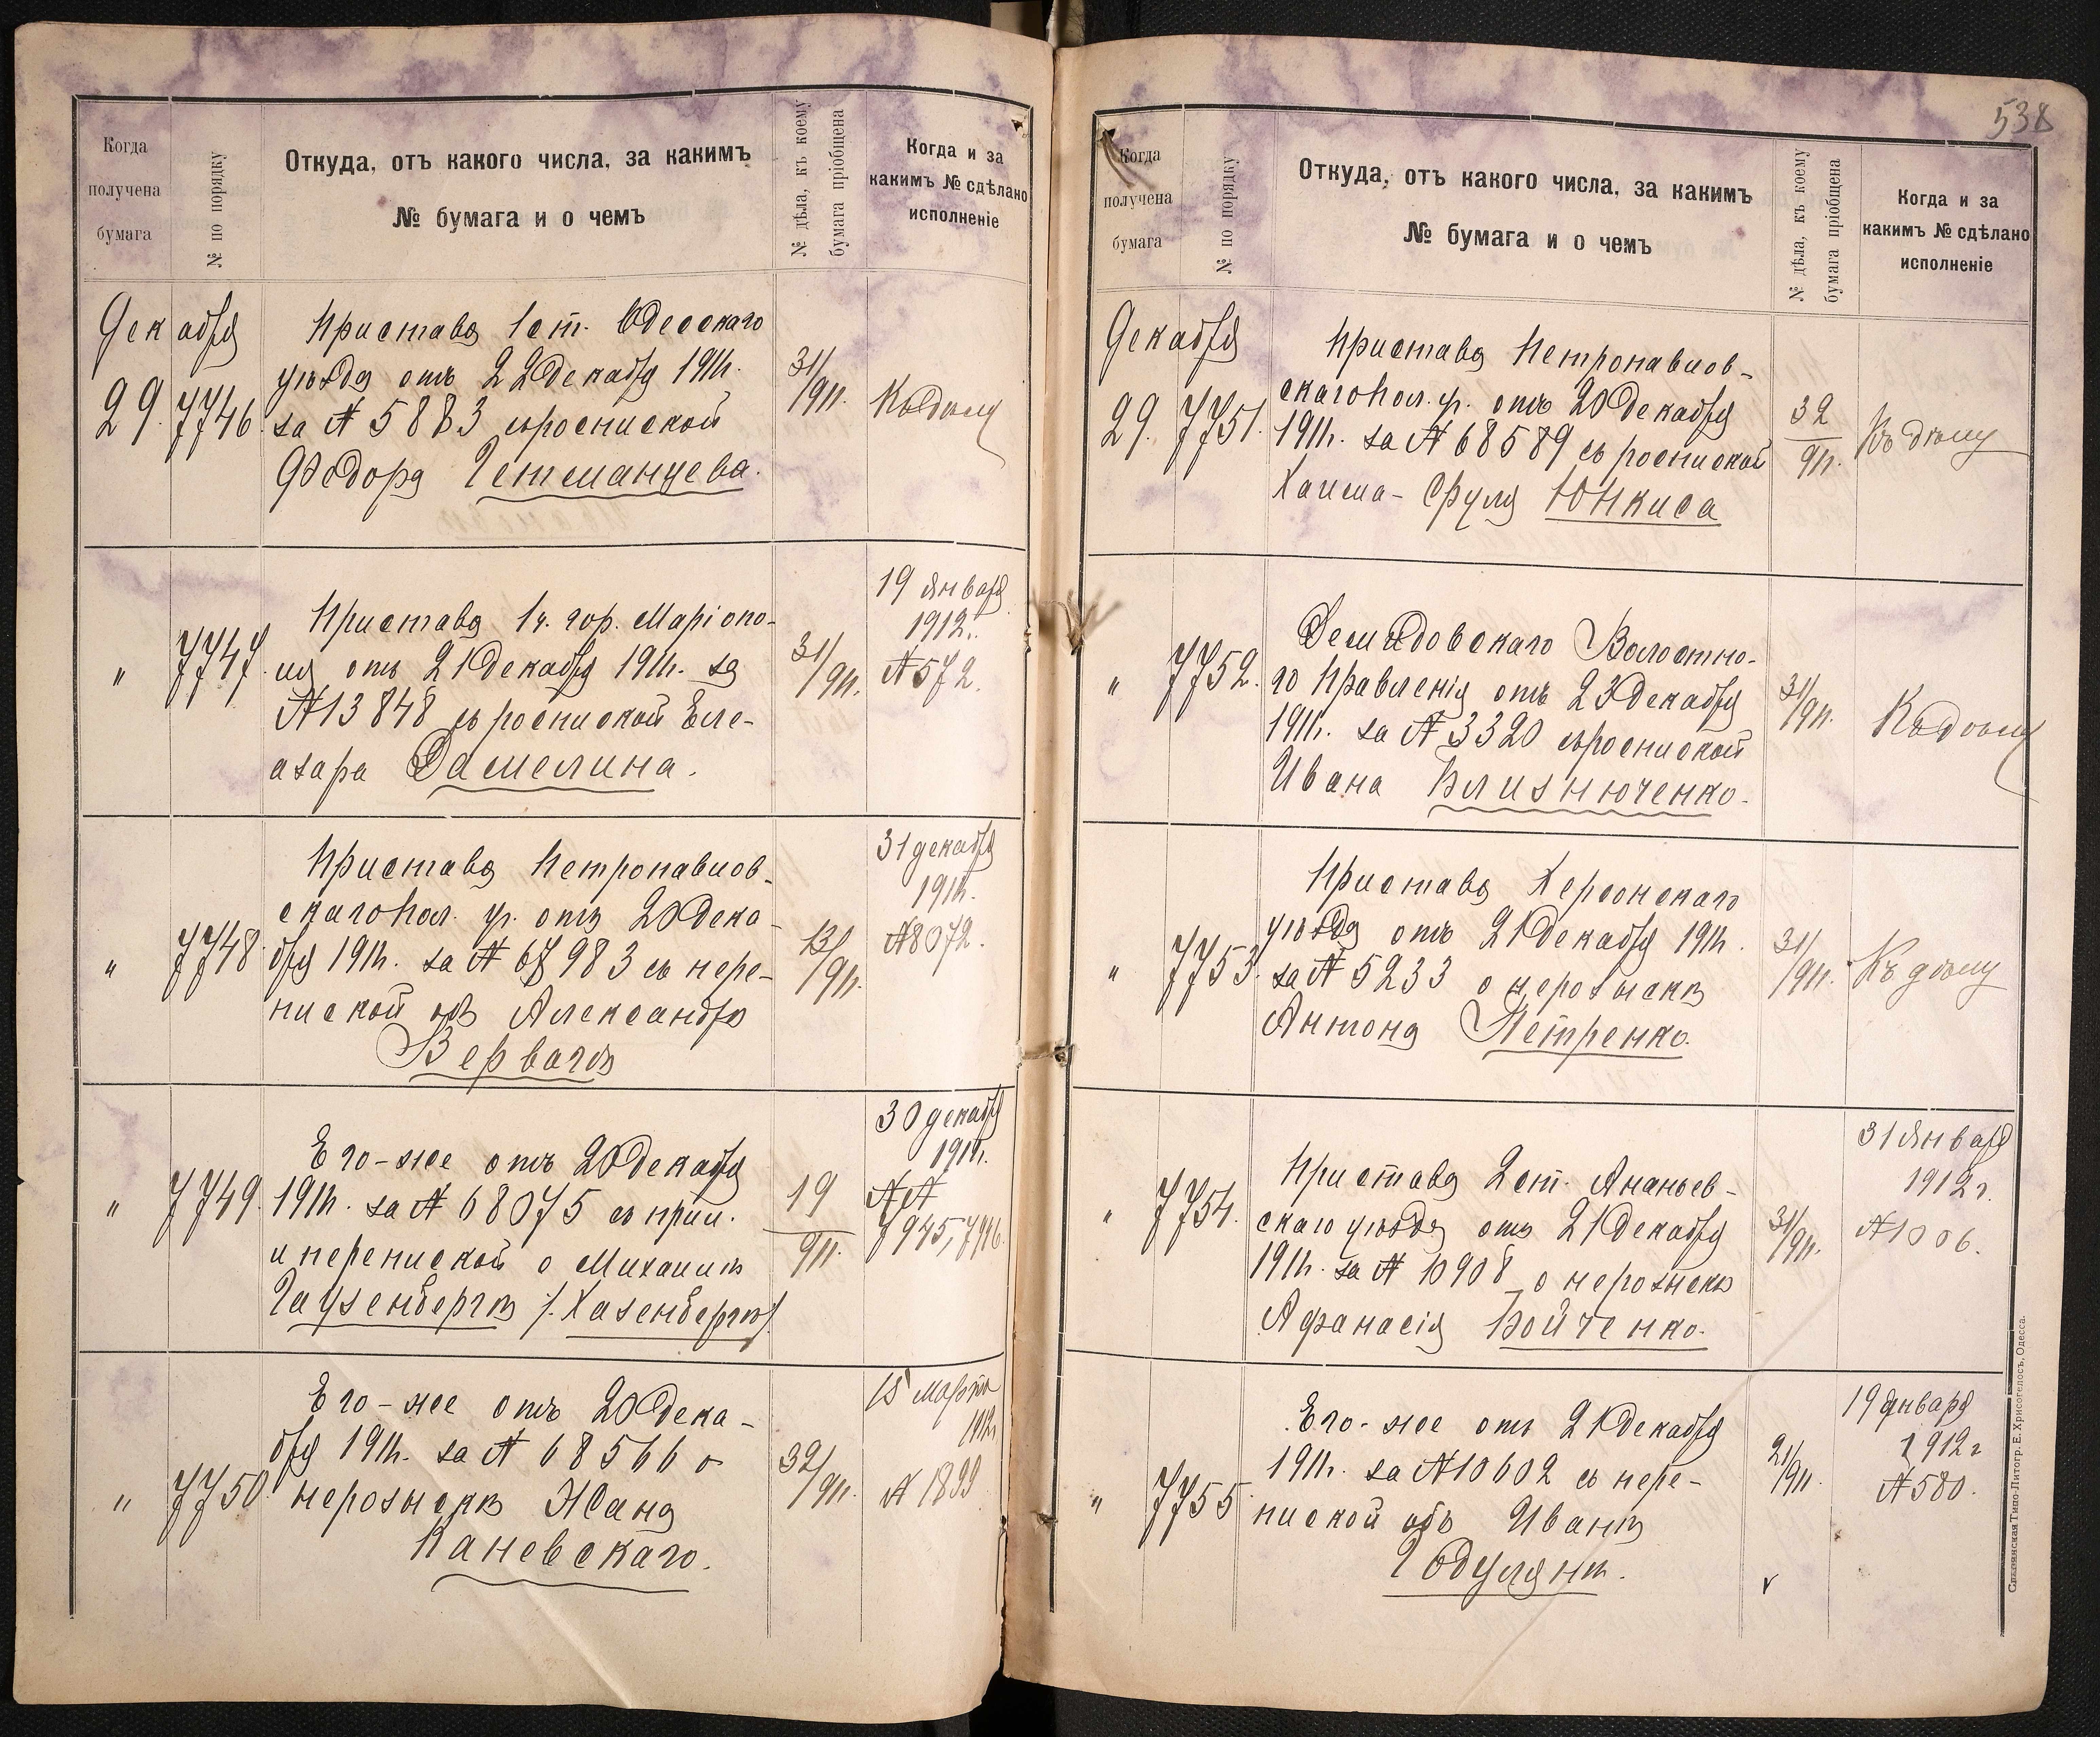 Когда получена бумага
№ по порядку
Откуда, отъ какого числа, за какимъ
№ бумага и о чемъ
№ дѣла, къ коему
бумага пріобщена
Когда и за
какимъ № сдѣлано
исполненіе
Декабря
29. 7746.
Пристава 1 ст. Одесскаго
уѣзда отъ 22 Декабря 1911г.
за № 5883 съ роспиской
Ѳедора Гетманцева.
31/911.
Къ дѣлу
" 7747.
Пристава 1 ч. гор. Маріопо-
ля отъ 21 Декабря 1911г. за
№ 13848 съ роспиской Еле-
азара Замелина.
31/911.
19 Января
1912г.
№ 572.
" 7748.
Пристава Петропавлов-
скаго Пол. у. отъ 20 Дека-
бря 1911г. за № 67983 съ пере-
пиской объ Александрѣ
Вервагѣ
13/911.
31 декабря
1911г.
№ 8072.
" 7749.
Его-же отъ 20 Декабря
1911г. за № 68075 съ прил.
и перепиской о Михаилѣ
Гаузенбергѣ /. Хазенбергѣ/
19/911.
30 декабря
1911г.
№№
7945, 7946.
" 7750.
Его-же отъ 20 Дека-
бря 1911г. за № 68566 о
нерозыскѣ Жана
Каневскаго.
32/911.
15 Марта
1912г.
№ 1899
538
Когда получена бумага
№ по порядку
Откуда, отъ какого числа, за какимъ
№ бумага и о чемъ
№ дѣла, къ коему
бумага пріобщена
Когда и за
какимъ № сдѣлано
исполненіе
Декабря
29. 7751.
Пристава Петропавлов-
скаго Пол. у. отъ 20 Декабря
1911г. за № 68589 съ роспиской
Хаима-Сруля Юнкиса
32/911.
Къ дѣлу
" 7752.
Волостно-
го Правленія отъ 23 Декабря
1911г. за № 3320 съ роспиской
Ивана Близнюченко.
31/911.
Къ дѣлу
" 7753.
Пристава Херсонскаго
уѣзда отъ 21 Декабря 1911г.
за № 5233 о нерозыскѣ
Антона Петренко.
31/911.
Къ дѣлу
" 7754.
Пристава 2 ст. Ананьев-
скаго уѣзда отъ 21 Декабря
1911г. за № 10908 о нерозыскѣ
Афанасія Войченко.
31/911.
31 Января
1912г.
№ 1006.
" 7755.
Его-же отъ 21 Декабря
1911г. за № 10602 съ пере-
пиской объ Иванѣ
Годулянѣ.
21/911.
19 Января
1912г
№ 580.
Славянская Типо-Литогр. Е. Хрисогелосъ, Одесса.